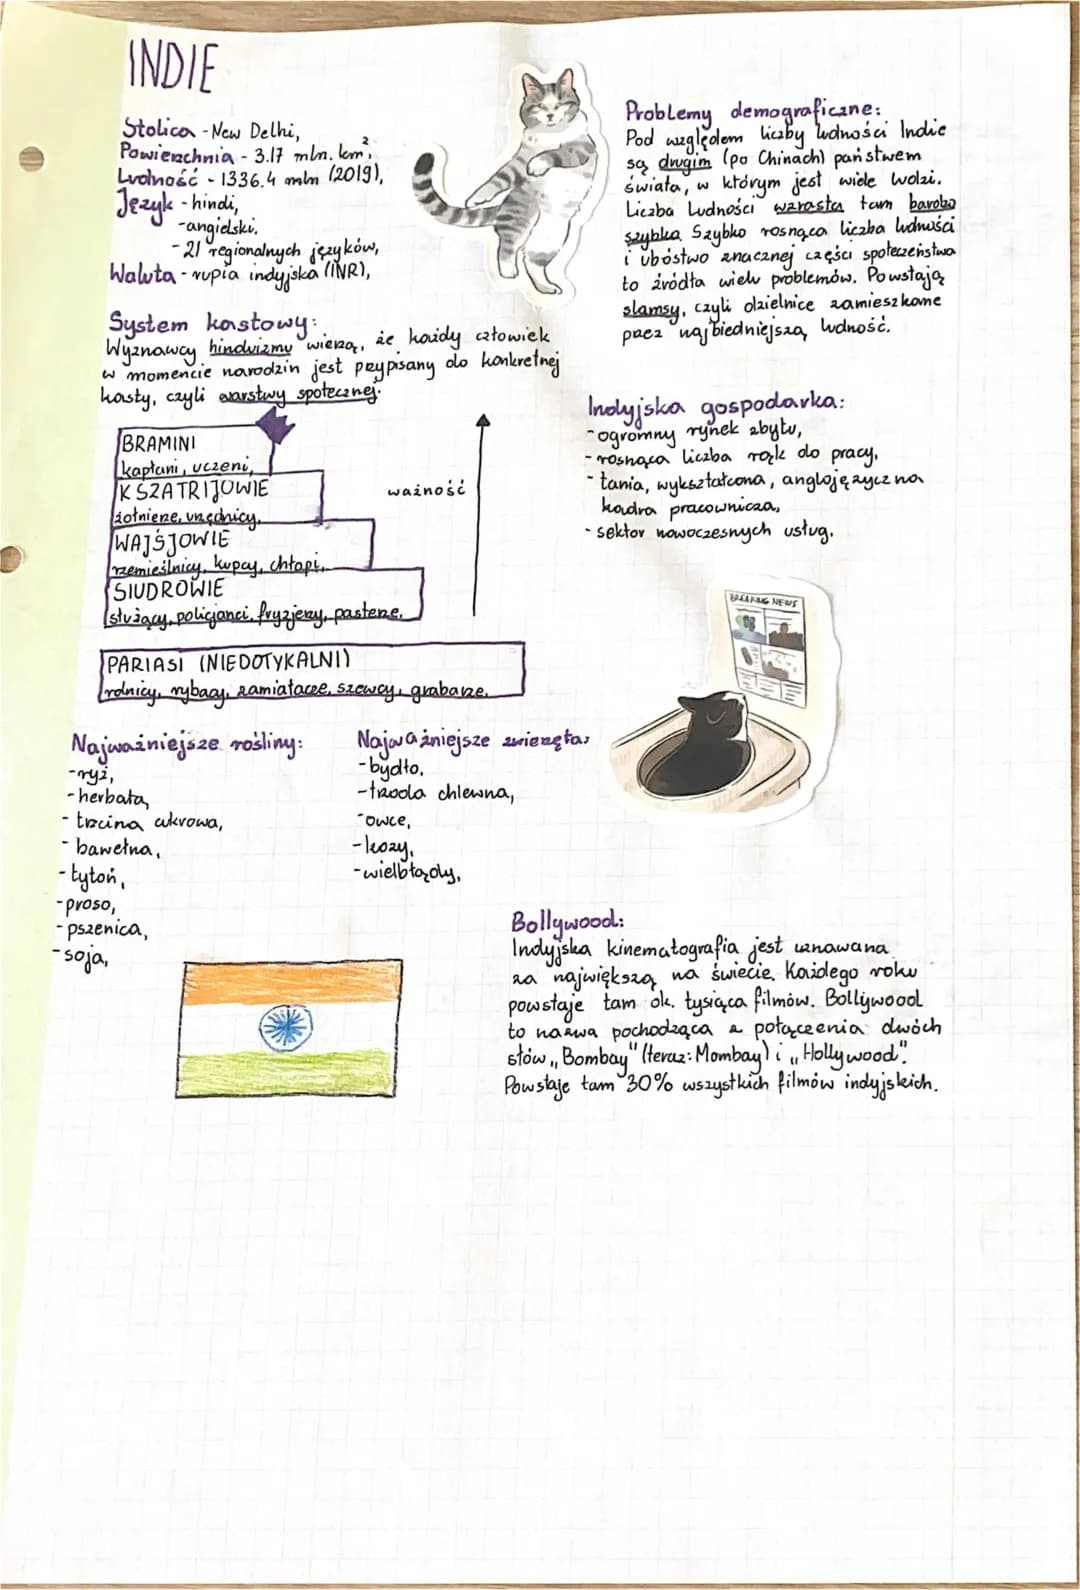 INDIE
Stolica - New Delhi,
Powierzchnia - 3.17 mln. km²,
Ludność - 1336.4 mln (2019),
Język - hindi,
- angielski,
- 21 regionalnych języków,
Waluta - rupia indyjska (INR),
System kastowy:
Wyznawcy hinduizmu wierzą, że każdy człowiek
w momencie narodzin jest przypisany do konkretnej
kasty, czyli warstwy społecznej.
BRAMINI
kapłani, uczeni,
KSZATRIJOWIE
żołnierze, urzędnicy,
WAJŚJOWIE
rzemieślnicy, kupcy, chłopi,
SIUDROWIE
służący, policjanci, fryzjerzy, pasterze,
ważność
PARIASI (NIEDOTYKALNI)
rolnicy, rybacy, zamiatacze, szewcy, grabarze,
Najważniejsze rośliny:
- ryż,
- herbata,
- trzcina cukrowa,
- bawełna,
- tytoń,
- proso,
- pszenica,
- soja,
Najważniejsze zwierzęta:
- bydło,
- trzoda chlewna,
- owce,
- kozy,
- wielbłądy,
Problemy demograficzne:
Pod względem liczby ludności Indie
są drugim (po Chinach) państwem
świata, w którym jest wiele ludzi.
Liczba ludności wzrasta tam bardzo
szybko. Szybko rosnąca liczba ludności
i ubóstwo znacznej części społeczeństwa
to źródła wielu problemów. Powstają
slamsy, czyli dzielnice zamieszkane
przez najbiedniejszą ludność.
Indyjska gospodarka:
- ogromny rynek zbytu,
- rosnąca liczba rąk do pracy,
- tania, wykształcona, anglojęzyczna
kadra pracownicza,
- sektor nowoczesnych usług.
BREAKING NEWS
Bollywood:
Indyjska kinematografia jest uznawana
za największą na świecie. Każdego roku
powstaje tam ok. tysiąca filmów. Bollywood
to nazwa pochodząca z połączenia dwóch
słów „Bombay" (teraz: Mombay) i „Hollywood".
Powstaje tam 30% wszystkich filmów indyjskich.